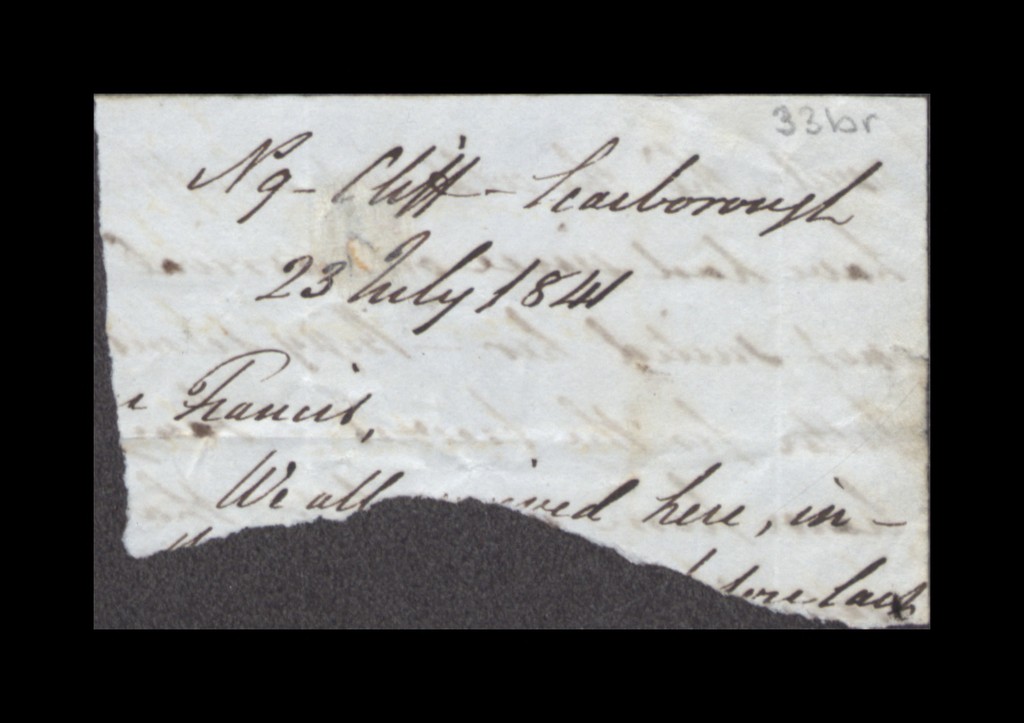 33br
N 9 - Cliff - Scarborough
23 July 1841
Francis,
We all here, in-
before last